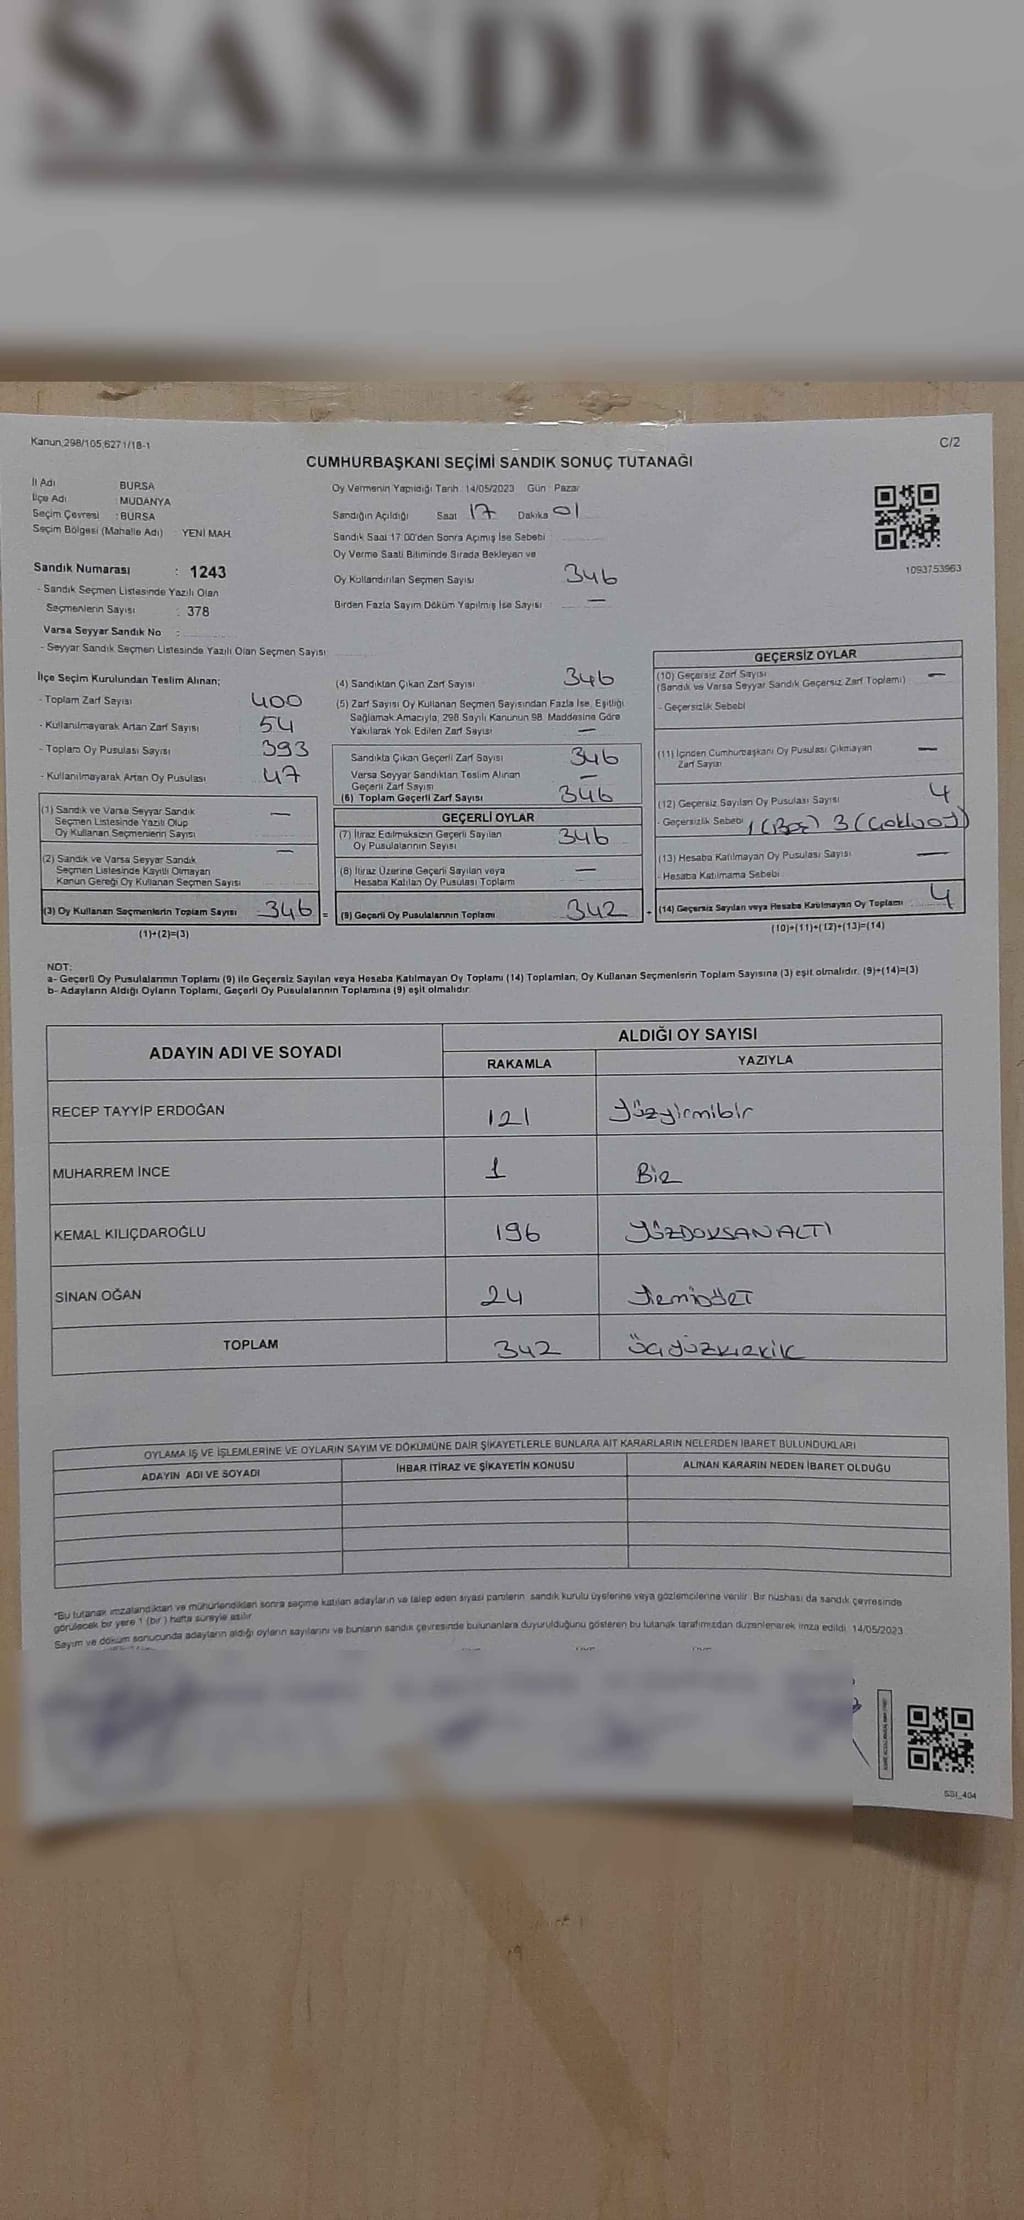 SANDIK
Kanun,298/105,6271/18-1
C/2
CUMHURBAŞKANI SEÇİMİ SANDIK SONUÇ TUTANAĞI
İl Adı BURSA
İlçe Adı : MUDANYA
Seçim Çevresi : BURSA
Seçim Bölgesi (Mahalle Adı) : YENİ MAH.
Sandık Numarası : 1243
- Sandık Seçmen Listesinde Yazılı Olan
Seçmenlerin Sayısı : 378
Varsa Seyyar Sandık No :
- Seyyar Sandık Seçmen Listesinde Yazılı Olan Seçmen Sayısı
Oy Vermenin Yapıldığı Tarih : 14/05/2023 Gün : Pazar
Sandığın Açıldığı Saat 17 Dakika 01
Sandık Saat 17:00'den Sonra Açımış İse Sebebi :
Oy Verme Saati Bitiminde Sırada Bekleyen ve
Oy Kullandırılan Seçmen Sayısı 346
Birden Fazla Sayım Döküm Yapılmış İse Sayısı —
1093753963
İlçe Seçim Kurulundan Teslim Alınan;
- Toplam Zarf Sayısı 400
- Kullanılmayarak Artan Zarf Sayısı 54
- Toplam Oy Pusulası Sayısı 393
- Kullanılmayarak Artan Oy Pusulası 47
(1) Sandık ve Varsa Seyyar Sandık —
Seçmen Listesinde Yazılı Olup
Oy Kullanan Seçmenlerin Sayısı
(2) Sandık ve Varsa Seyyar Sandık —
Seçmen Listesinde Kayıtlı Olmayan
Kanun Gereği Oy Kullanan Seçmen Sayısı
(3) Oy Kullanan Seçmenlerin Toplam Sayısı 346 =
(1)+(2)=(3)
(4) Sandıktan Çıkan Zarf Sayısı 346
(5) Zarf Sayısı Oy Kullanan Seçmen Sayısından Fazla İse, Eşitliği
Sağlamak Amacıyla, 298 Sayılı Kanunun 98. Maddesine Göre
Yakılarak Yok Edilen Zarf Sayısı —
Sandıkta Çıkan Geçerli Zarf Sayısı 346
Varsa Seyyar Sandıktan Teslim Alınan —
Geçerli Zarf Sayısı
(6) Toplam Geçerli Zarf Sayısı 346
GEÇERLİ OYLAR
(7) İtiraz Edilmeksizin Geçerli Sayılan 346
Oy Pusulalarının Sayısı
(8) İtiraz Üzerine Geçerli Sayılan veya —
Hesaba Katılan Oy Pusulası Toplamı
(9) Geçerli Oy Pusulalarının Toplamı 342 +
GEÇERSİZ OYLAR
(10) Geçersiz Zarf Sayısı —
(Sandık ve Varsa Seyyar Sandık Geçersiz Zarf Toplamı)
- Geçersizlik Sebebi
(11) İçinden Cumhurbaşkanı Oy Pusulası Çıkmayan —
Zarf Sayısı
(12) Geçersiz Sayılan Oy Pusulası Sayısı 4
- Geçersizlik Sebebi 1 (Boş) 3 (Çokluoy)
(13) Hesaba Katılmayan Oy Pusulası Sayısı —
- Hesaba Katılmama Sebebi
(14) Geçersiz Sayılan veya Hesaba Katılmayan Oy Toplamı 4
(10)+(11)+(12)+(13)=(14)
NOT:
a- Geçerli Oy Pusulalarının Toplamı (9) ile Geçersiz Sayılan veya Hesaba Katılmayan Oy Toplamı (14) Toplamları, Oy Kullanan Seçmenlerin Toplam Sayısına (3) eşit olmalıdır. (9)+(14)=(3)
b- Adayların Aldığı Oyların Toplamı, Geçerli Oy Pusulalarının Toplamına (9) eşit olmalıdır.
ADAYIN ADI VE SOYADI ALDIĞI OY SAYISI
RAKAMLA YAZIYLA
RECEP TAYYİP ERDOĞAN 121 Yüzyirmibir
MUHARREM İNCE 1 Bir
KEMAL KILIÇDAROĞLU 196 YÜZDOKSANALTI
SİNAN OĞAN 24 Yirmidört
TOPLAM 342 Üçyüzkırkik
OYLAMA İŞ VE İŞLEMLERİNE VE OYLARIN SAYIM VE DÖKÜMÜNE DAİR ŞİKAYETLERLE BUNLARA AİT KARARLARIN NELERDEN İBARET BULUNDUKLARI
ADAYIN ADI VE SOYADI İHBAR İTİRAZ VE ŞİKAYETİN KONUSU ALINAN KARARIN NEDEN İBARET OLDUĞU
*Bu tutanak imzalandıktan ve mühürlendikten sonra seçime katılan adayların ve talep eden siyasi partilerin sandık kurulu üyelerine veya gözlemcilerine verilir. Bir nüshası da sandık çevresinde
görülecek bir yere 1 (bir) hafta süreyle asılır.
Sayım ve döküm sonucunda adayların aldığı oyların sayılarını ve bunların sandık çevresinde bulunanlara duyurulduğunu gösteren bu tutanak tarafımızdan düzenlenerek imza edildi. 14/05/2023
SSI_404